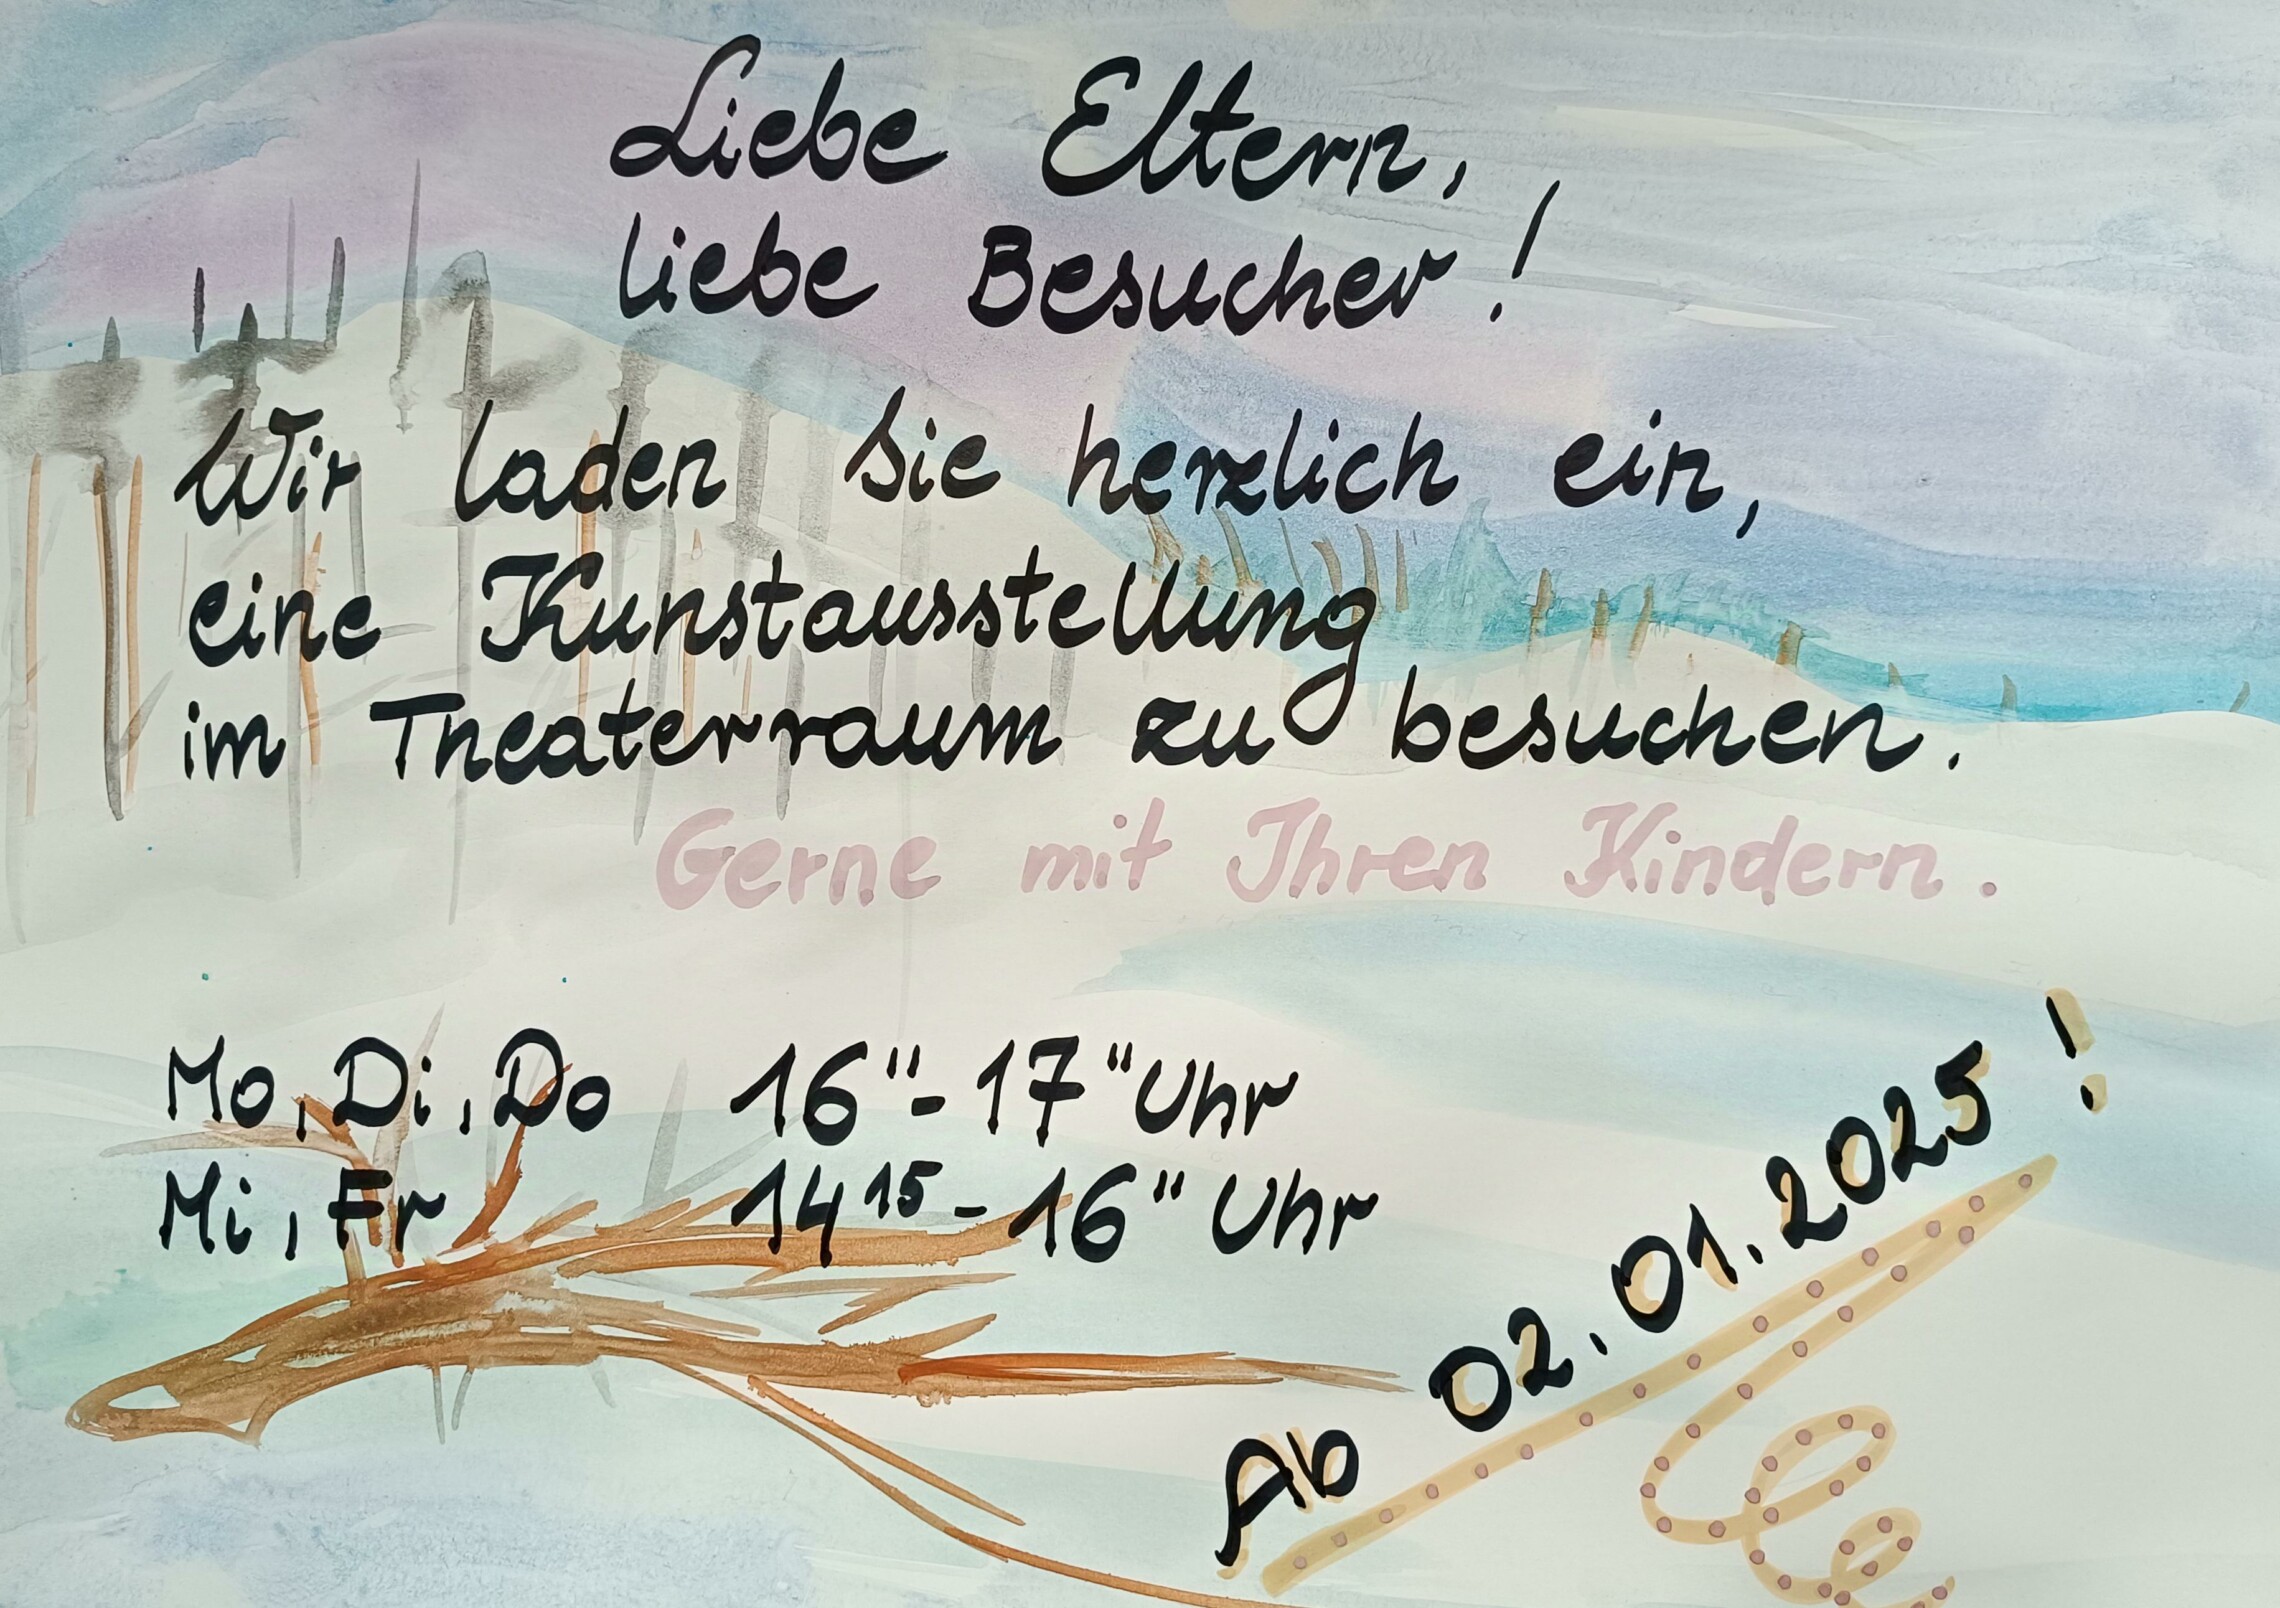 Liebe Eltern,
liebe Besucher!
Wir laden Sie herzlich ein,
eine Kunstausstellung
im Theaterraum zu besuchen.
Gerne mit Ihren Kindern.
Mo, Di, Do 16" - 17" Uhr
Mi, Fr 14¹⁵ - 16" Uhr
Ab 02.01.2025!